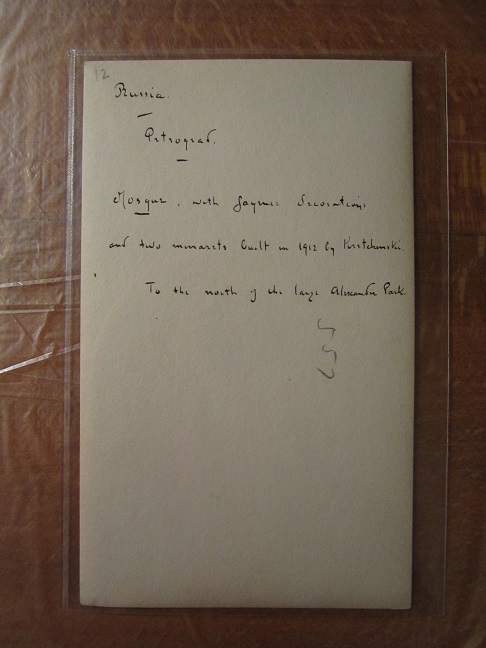 12
Russia.
Petrograd.
Mosque, with fayence decorations
and two minarets. Built in 1912 by Kretchinski.
To the north of the large Alexander Park.